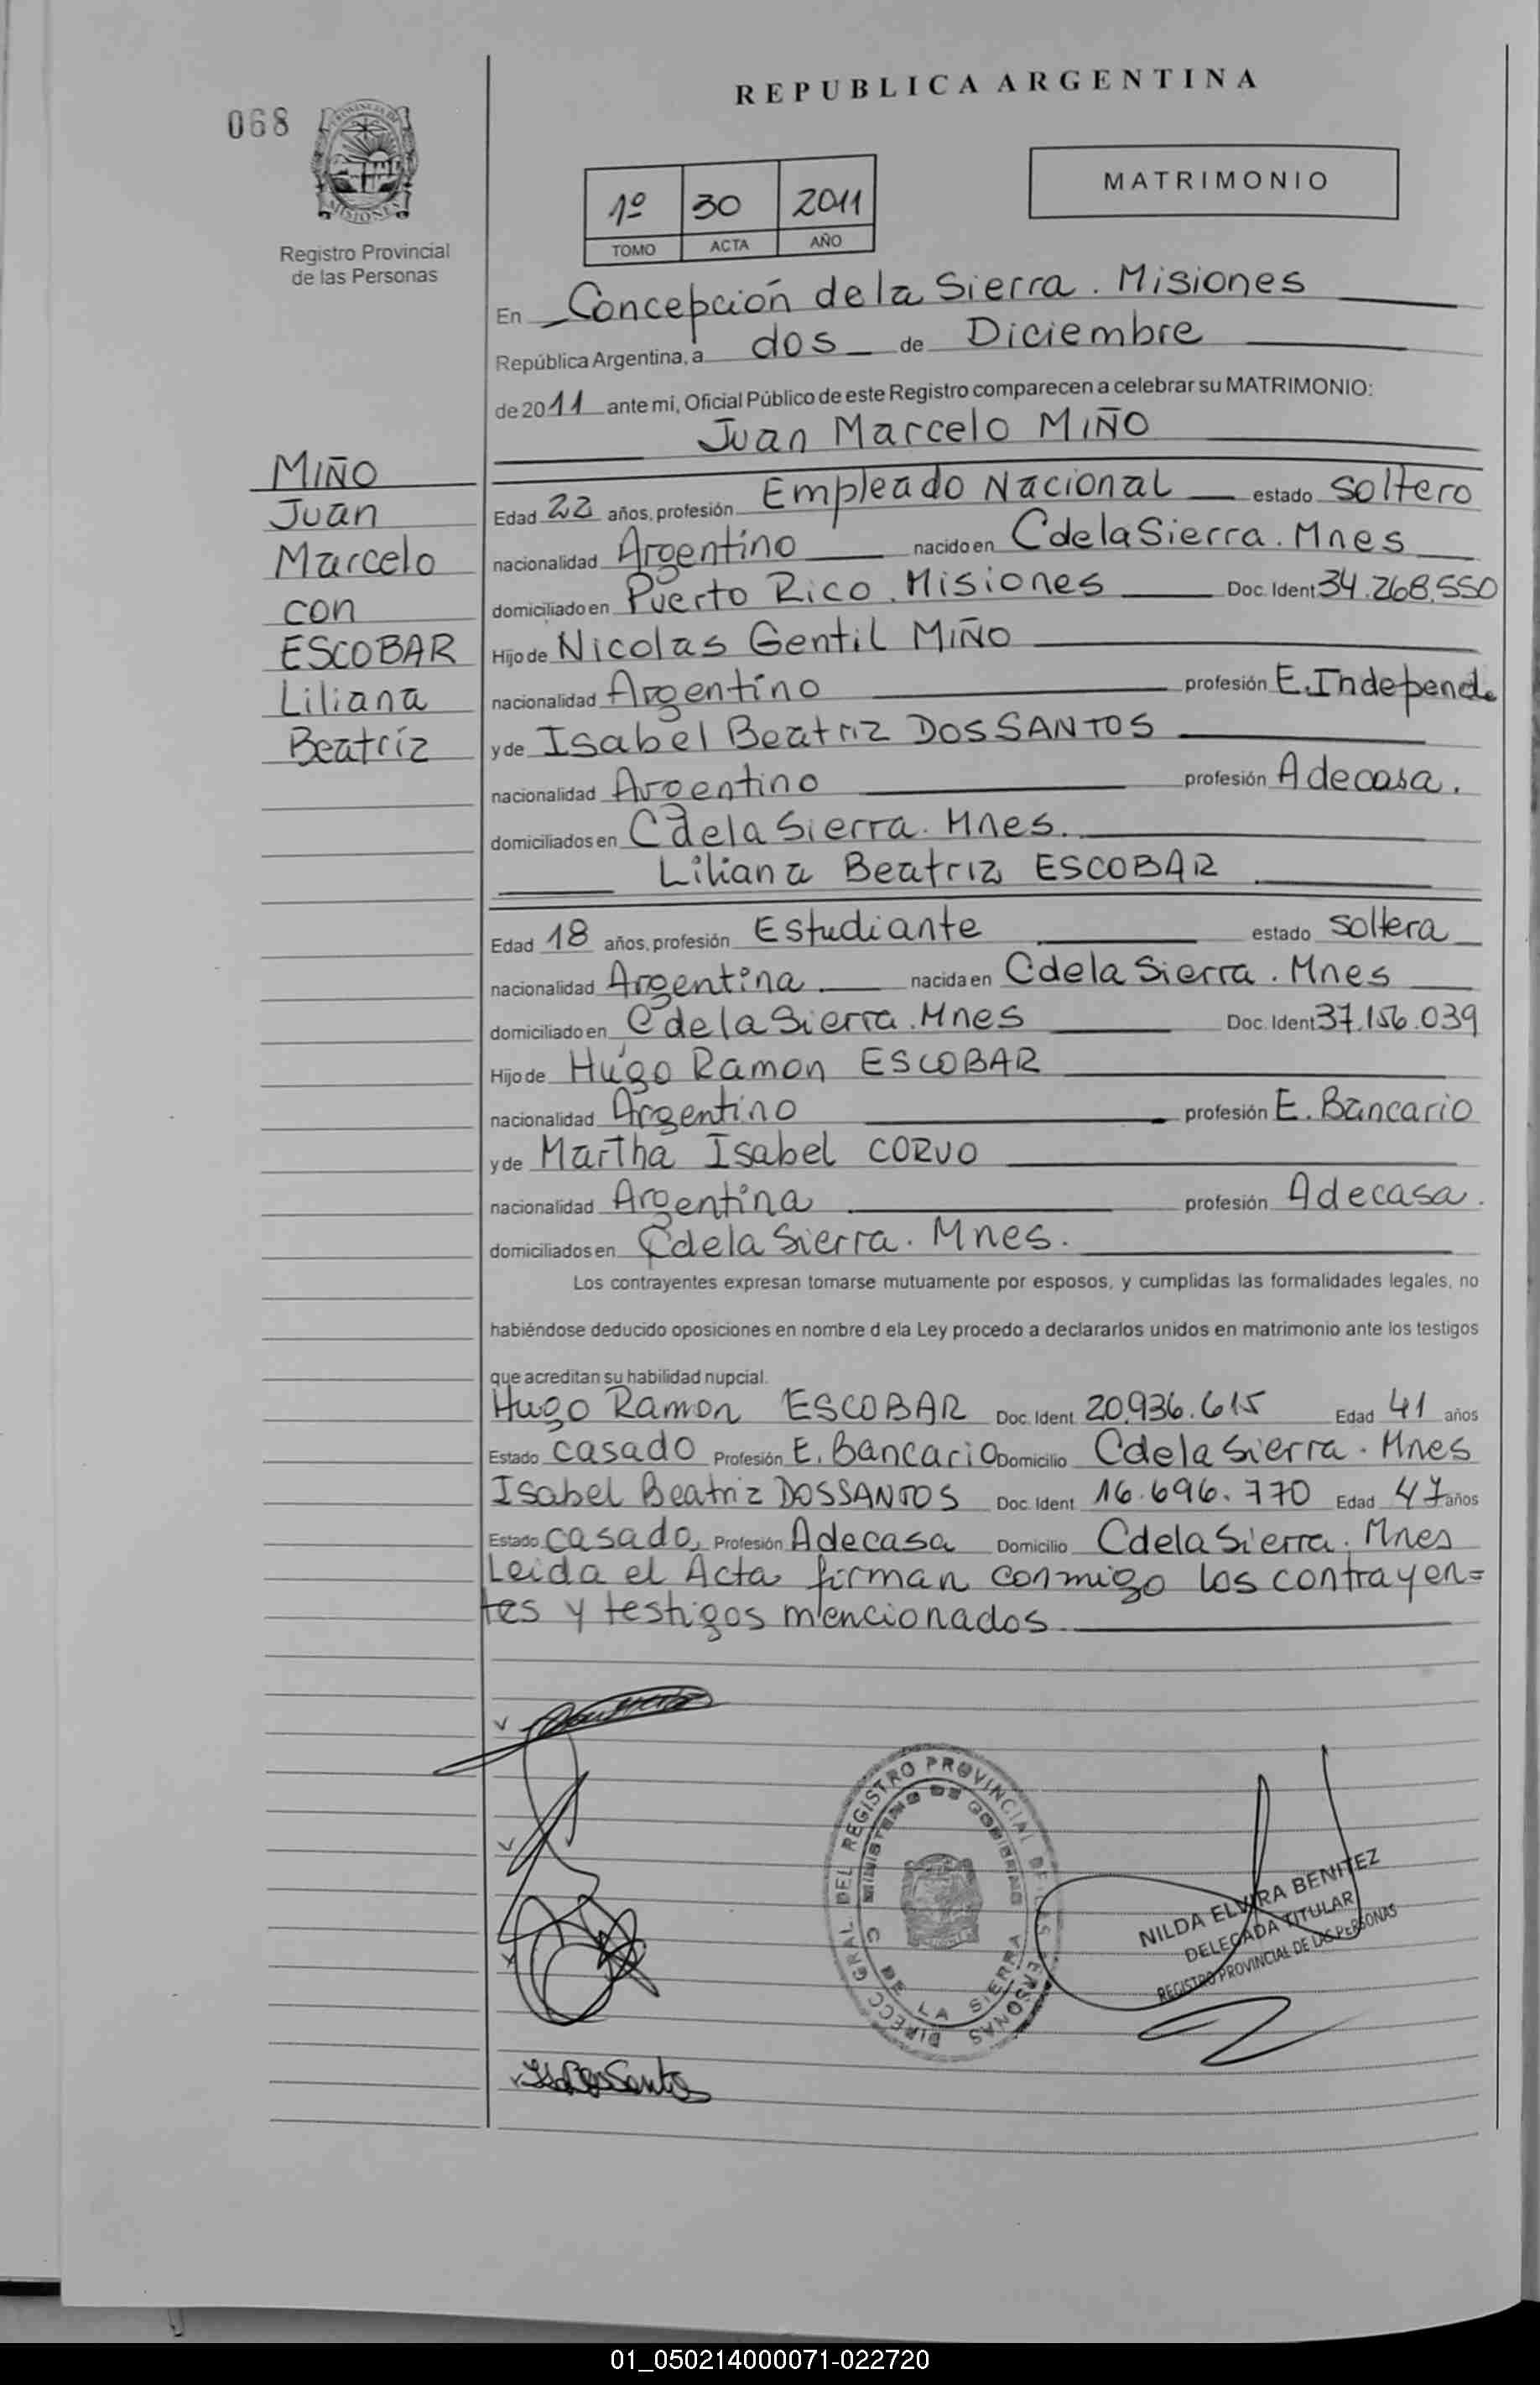 REPUBLICA ARGENTINA
068
PROVINCIA DE
MISIONES
Registro Provincial
de las Personas
1º 30 2011
TOMO ACTA AÑO
MATRIMONIO
En Concepción de la Sierra. Misiones
República Argentina, a dos de Diciembre
de 2011 ante mi, Oficial Público de este Registro comparecen a celebrar su MATRIMONIO:
Juan Marcelo MIÑO
MIÑO
Juan
Marcelo
con
ESCOBAR
Liliana
Beatríz
Edad 22 años, profesión Empleado Nacional estado soltero
nacionalidad Argentino nacido en C de la Sierra. Mnes
domiciliado en Puerto Rico. Misiones Doc. Ident 34.268.550
Hijo de Nicolas Gentil MIÑO
nacionalidad Argentino profesión E. Independ.
y de Isabel Beatriz DOSSANTOS
nacionalidad Argentino profesión Adecasa.
domiciliados en C de la Sierra. Mnes.
Liliana Beatriz ESCOBAR
Edad 18 años, profesión Estudiante estado soltera
nacionalidad Argentina nacida en C de la Sierra. Mnes
domiciliado en C de la Sierra. Mnes Doc. Ident 37.156.039
Hijo de Hugo Ramon ESCOBAR
nacionalidad Argentino profesión E. Bancario
y de Martha Isabel CORVO
nacionalidad Argentina profesión Adecasa.
domiciliados en C de la Sierra. Mnes.
Los contrayentes expresan tomarse mutuamente por esposos, y cumplidas las formalidades legales, no
habiéndose deducido oposiciones en nombre d ela Ley procedo a declararlos unidos en matrimonio ante los testigos
que acreditan su habilidad nupcial.
Hugo Ramon ESCOBAR Doc. Ident 20.936.615 Edad 41 años
Estado casado Profesión E. Bancario Domicilio C de la Sierra. Mnes
Isabel Beatriz DOSSANTOS Doc. Ident 16.696.770 Edad 47 años
Estado casado, Profesión Adecasa Domicilio C de la Sierra. Mnes
Leida el Acta firman conmigo los contrayen=
tes y testigos mencionados.
DIRECC GRAL. DEL REGISTRO PROVINCIAL DE LAS PERSONAS
MINISTERIO DE GOBIERNO
C DE LA SIERRA
NILDA ELVIRA BENITEZ
DELEGADA TITULAR
REGISTRO PROVINCIAL DE LAS PERSONAS
01_050214000071-022720